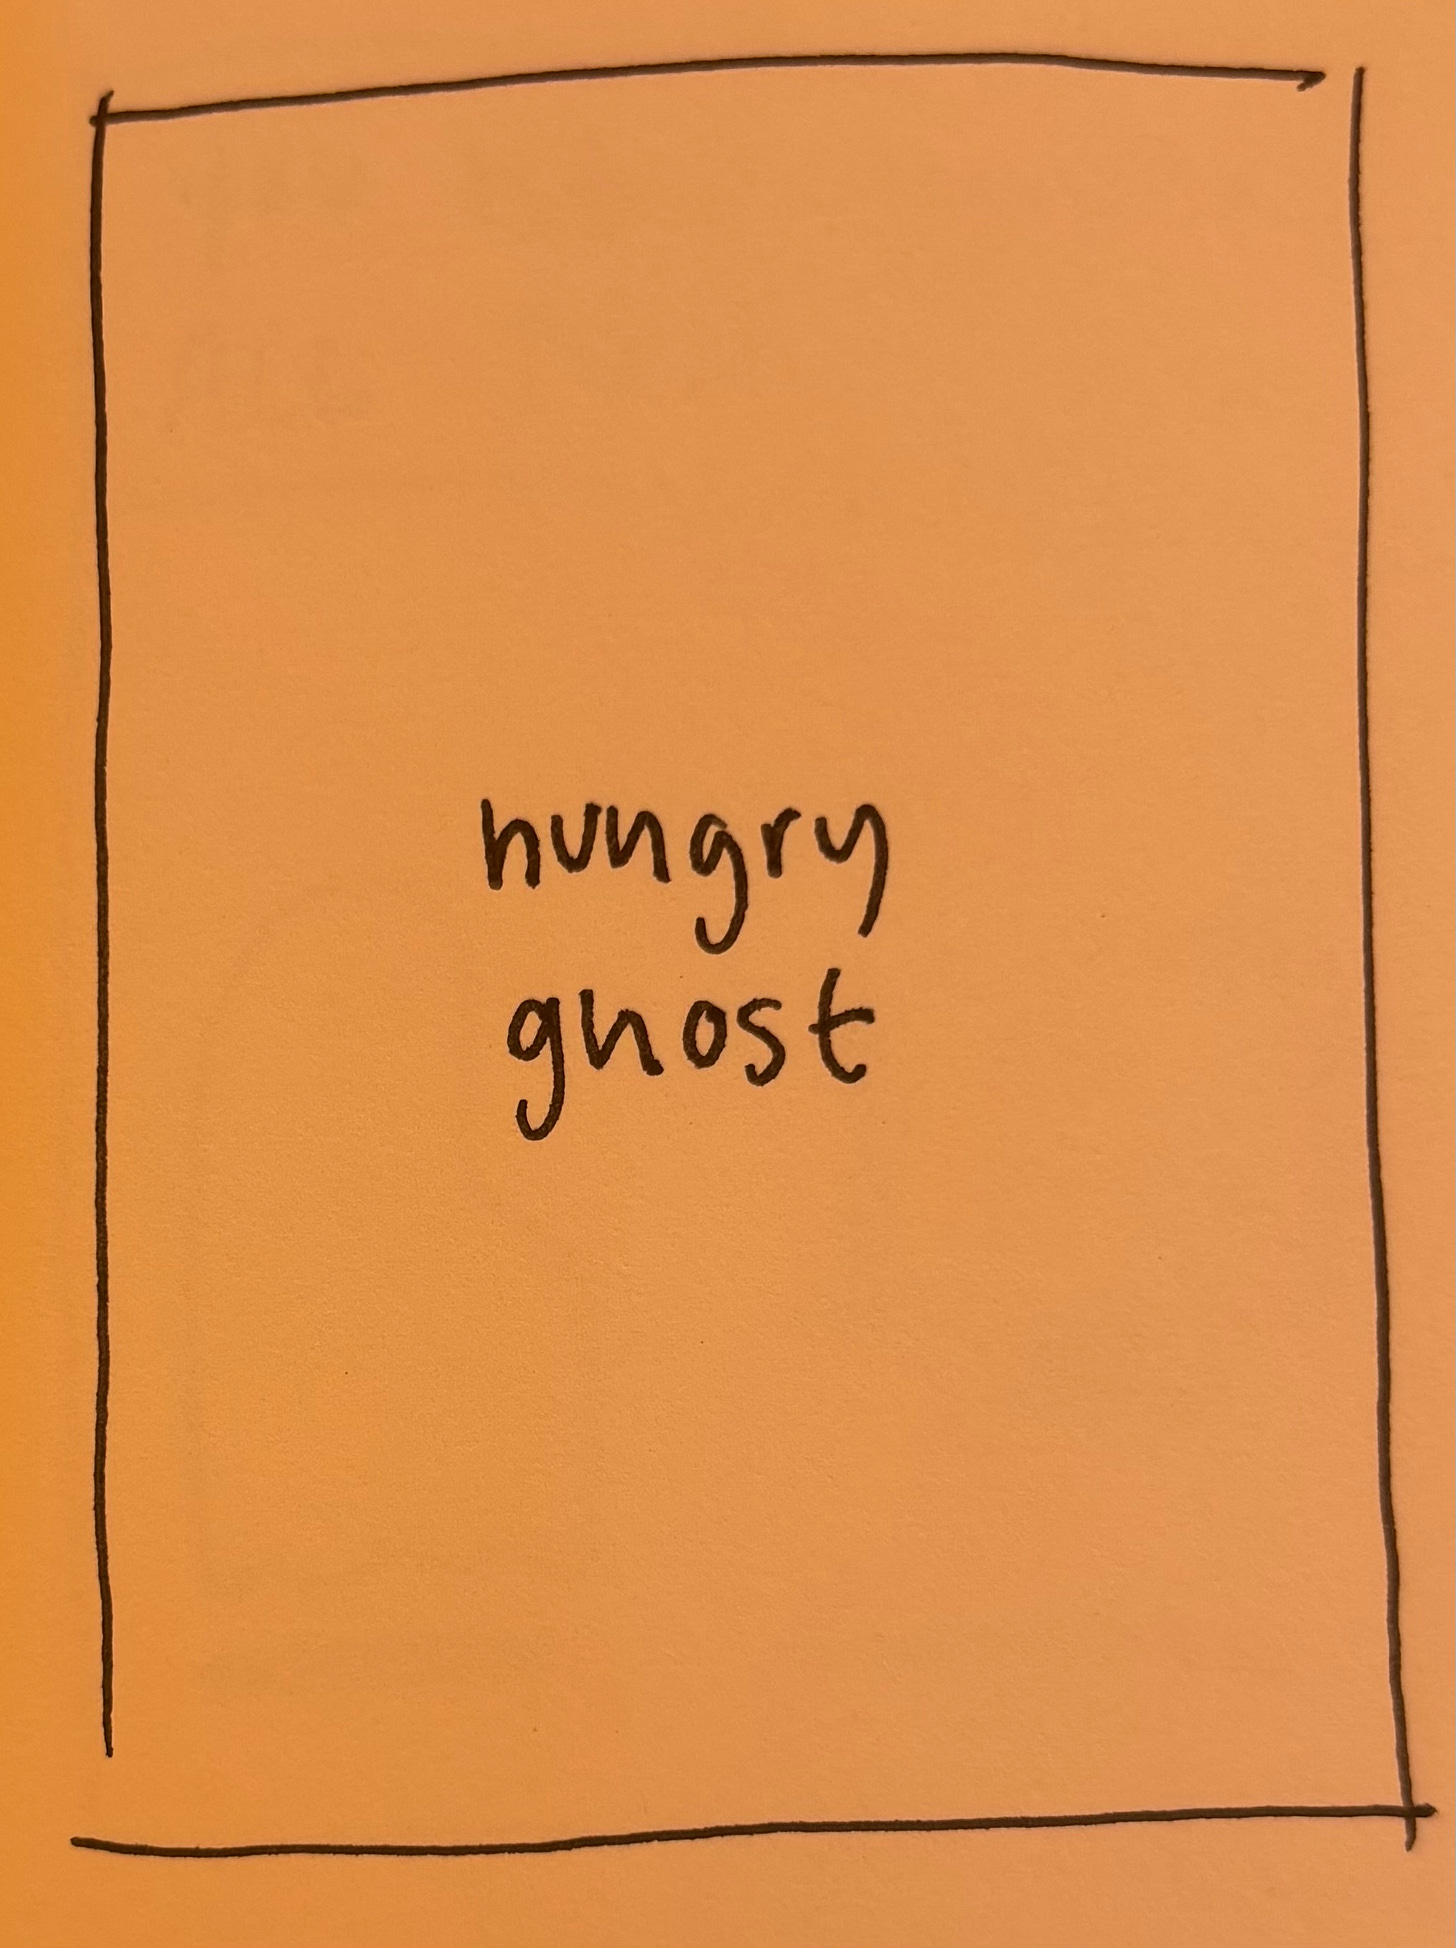 hungry
ghost